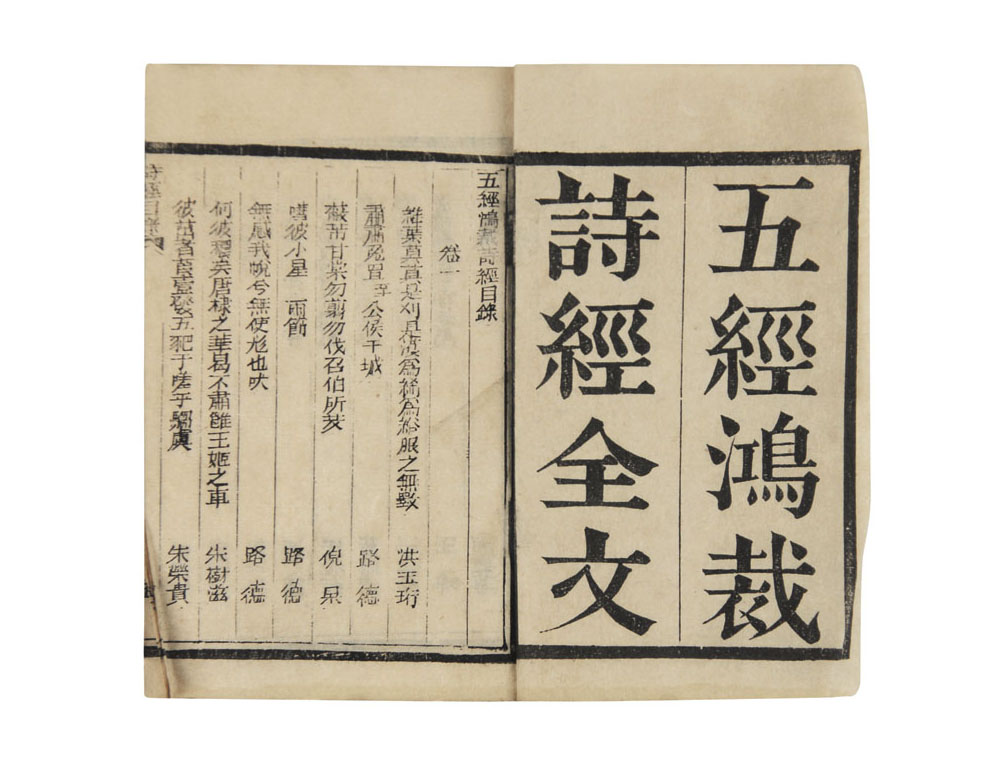 五經鴻裁
詩經全文
五經鴻裁詩經目錄
卷一
維葉莫莫是刈是濩為絺為綌服之無斁 洪玉珩
肅肅兔罝 至 公侯干城 路德
蔽芾甘棠勿翦勿伐召伯所茇 倪
嘒彼小星 兩節 路德
無感我帨兮無使尨也吠 路德
何彼穠矣唐棣之華曷不肅雝王姬之車 朱樹滋
彼茁者葭壹發五豝于嗟乎騶虞 朱榮貴
詩經目錄